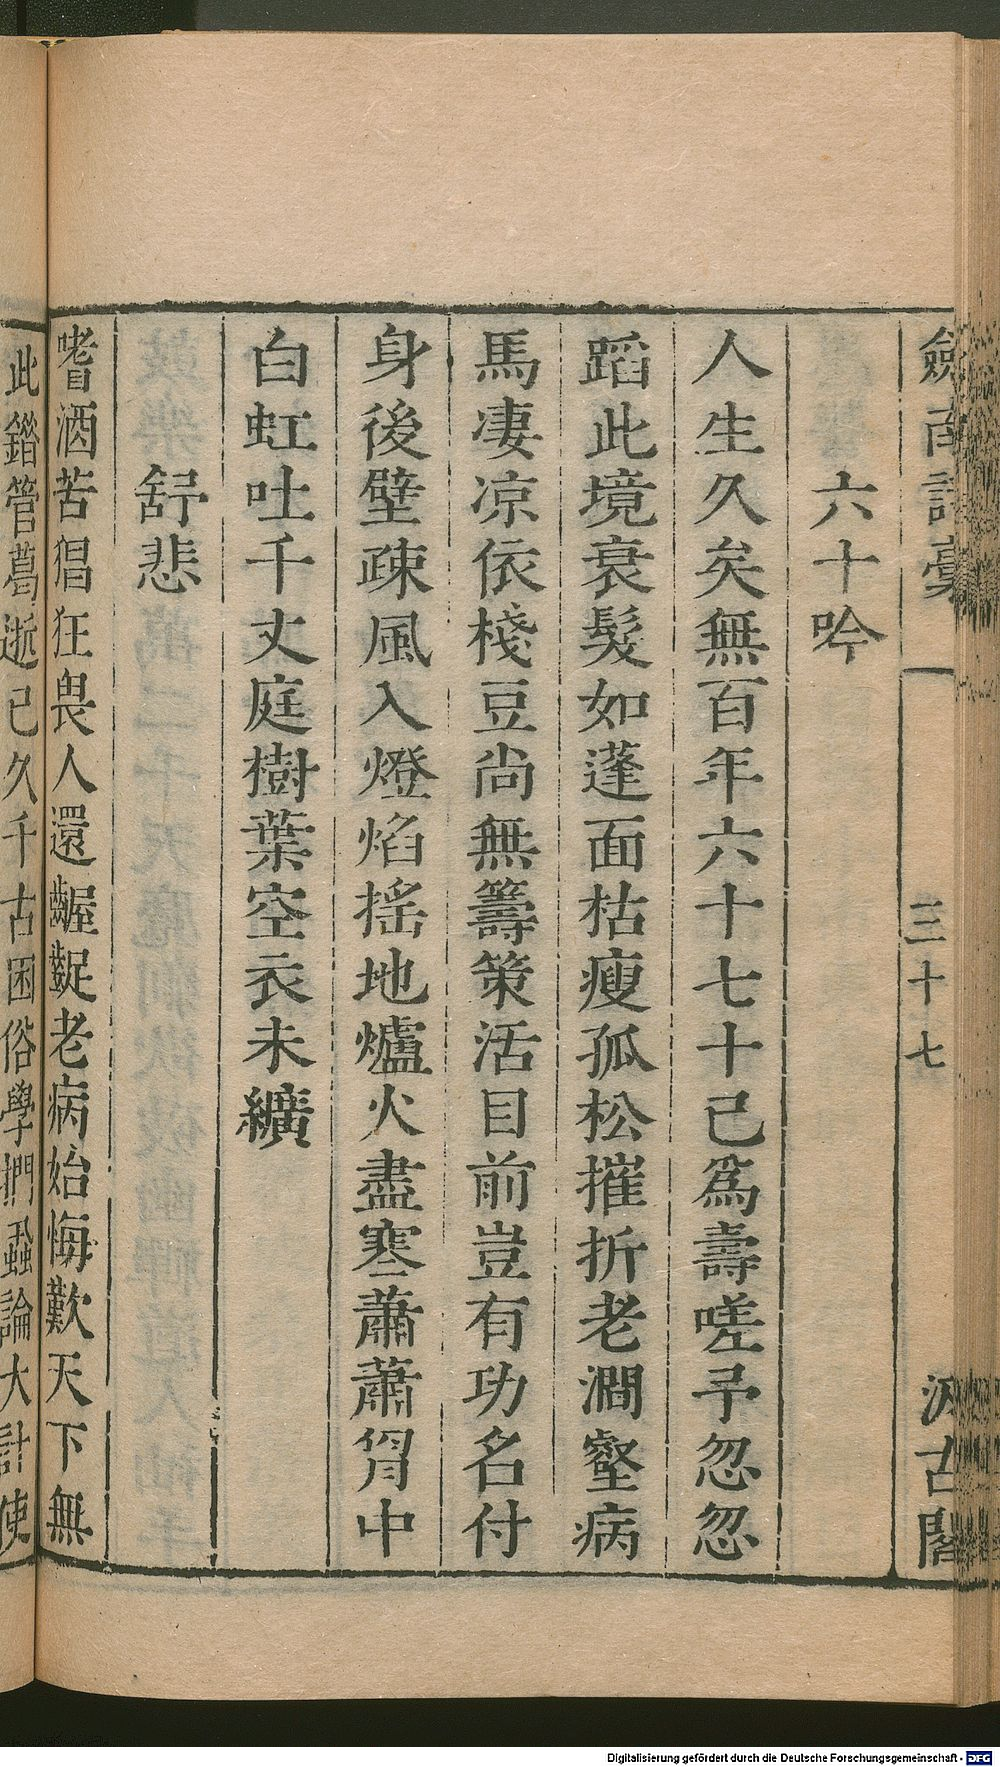 劒南詩藁
三十七
汲古閣
六十吟
人生久矣無百年六十七十已爲壽嗟予忽忽
蹈此境衰髮如蓬面枯瘦孤松摧折老澗壑病
馬凄凉依棧豆尚無籌策活目前豈有功名付
身後壁疎風入燈焰搖地爐火盡寒蕭蕭胷中
白虹吐千丈庭樹葉空衣未纊
舒悲
嗜酒苦猖狂畏人還齷齪老病始悔歎天下無
此錯管葛逝已久千古困俗學捫蝨論大計使
Digitalisierung gefördert durch die Deutsche Forschungsgemeinschaft - DFG